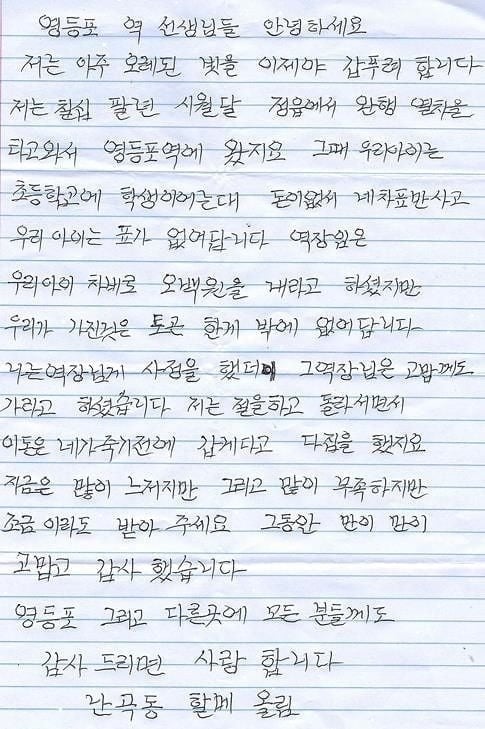 영등포 역 선생님들 안녕하세요
저는 아주 오레된 빛을 이제야 갑푸려 합니다
저는 칠십 팔년 시월달 정읍에서 완행 열차을
타고와서 영등포역에 왔지요 그때 우리아이는
초등학교에 학생이어는대 돈이없서 네차표만사고
우리 아이는 표가 없어답니다 역장임은
우리아이 차비로 오백원을 내라고 하셨지만
우리가 가진것은 토큰 한게 밖에 없어답니다
나는역장님게 사정을 했더니 그역장님은 고맙께도
가라고 하셨습니다 저는 절을하고 돌라서면서
이돈은 네가죽기전에 갑게다고 다짐을 했지요
지금은 많이 느저지만 그리고 많이 부족하지만
조금 이라도 받아 주세요 그동안 만이 만이
고맙고 감사 했습니다
영등포 그리고 다른곳에 모든 분들께도
감사 드리면 사랑 합니다
난곡동 할메 올림